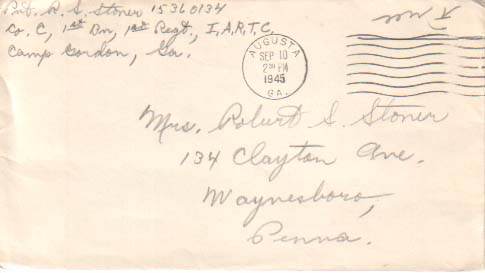 Pvt. R. S. Stoner 15360134
Co. C, 1st Bn, 1st Regt., I.A.R.T.C.
Camp Gordon, Ga.
Free
AUGUSTA
SEP 10
2 PM
1945
GA.
Mrs. Robert S. Stoner
134 Clayton Ave.
Waynesboro,
Penna.